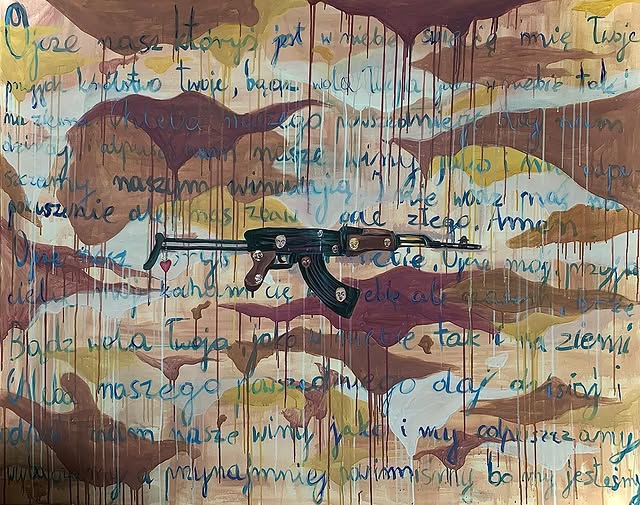 Ojcze nasz któryś jest w niebie święć się imię Twoje
przyjdź królestwo Twoje, bądź wola Twoja jako w niebie tak i
na ziemi Chleba naszego powszedniego daj nam
dzisiaj i odpuść nam nasze winy jako i my odpu-
szczamy naszym winowajcą i nie wódź nas na
pokuszenie ale nas zbaw ode złego. Amen
Ojcze nasz któryś niebie, Ojcze mój, przyjdź
kocham Cię ale
Bądź wola Twoja, jako w niebie tak i na ziemi
Chleba naszego powszedniego daj dzisiaj i
odpuść nam nasze winy jako i my odpuszczamy
a przynajmniej powinniśmy bo my jesteśmy